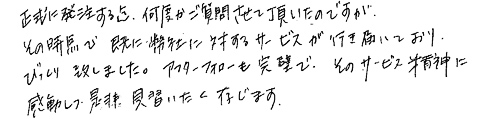 正式に発注する迄、何度かご質問させて頂いたのですが、
その時点で既に弊社に対するサービスが行き届いており、
びっくり致しました。アフターフォローも完璧で、そのサービス精神に
感動して是非見習いたく存じます。